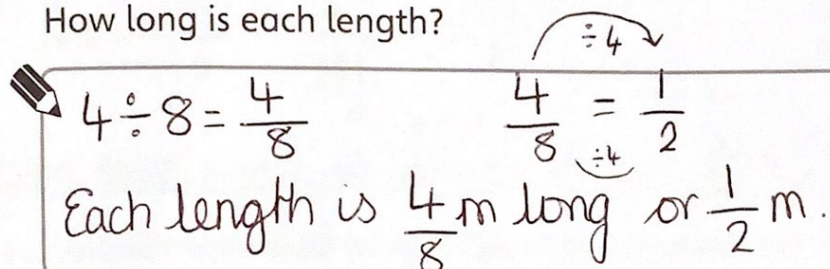 How long is each length?
÷4
4 ÷ 8 = 4/8
4/8 = 1/2
÷4
Each length is 4/8 m long or 1/2 m.